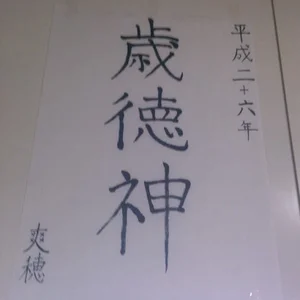 平成二十六年
歳徳神
爽穂